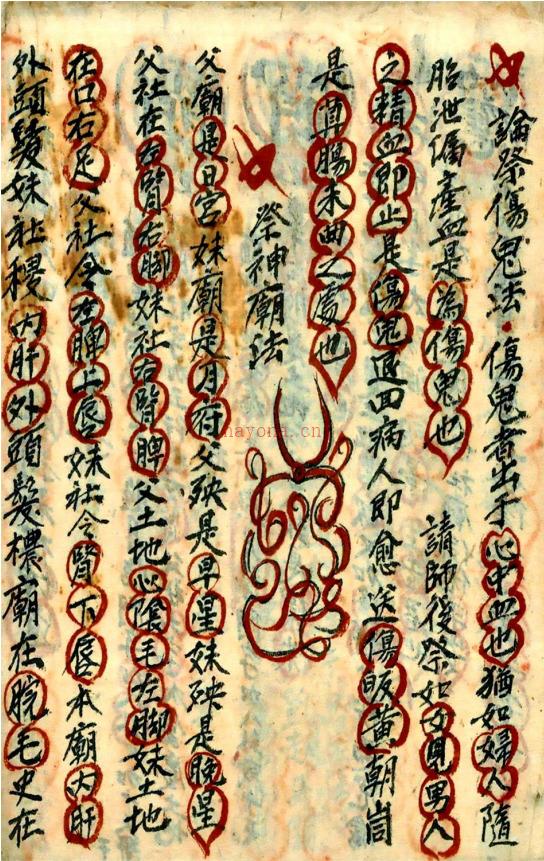 論祭傷鬼法傷鬼者出于心中血也猶如婦人隨
胎泄漏產血是為傷鬼也 請師後祭如女見男人
之精血即止是傷鬼退回病人即愈送傷畈黃朝岿
是草腸木曲之處也
祭神廟法
父廟是日宮妹廟是月府父殃是早星妹殃是晚星
父社在左腎右脚妹社右腎脾父土地心陰毛左脚妹土地
在口右足父社令左脾上唇妹社令腎下唇本廟內肝
外頭髮妹社稷內肝外頭髮檂廟在脘毛史在
nayona.cn